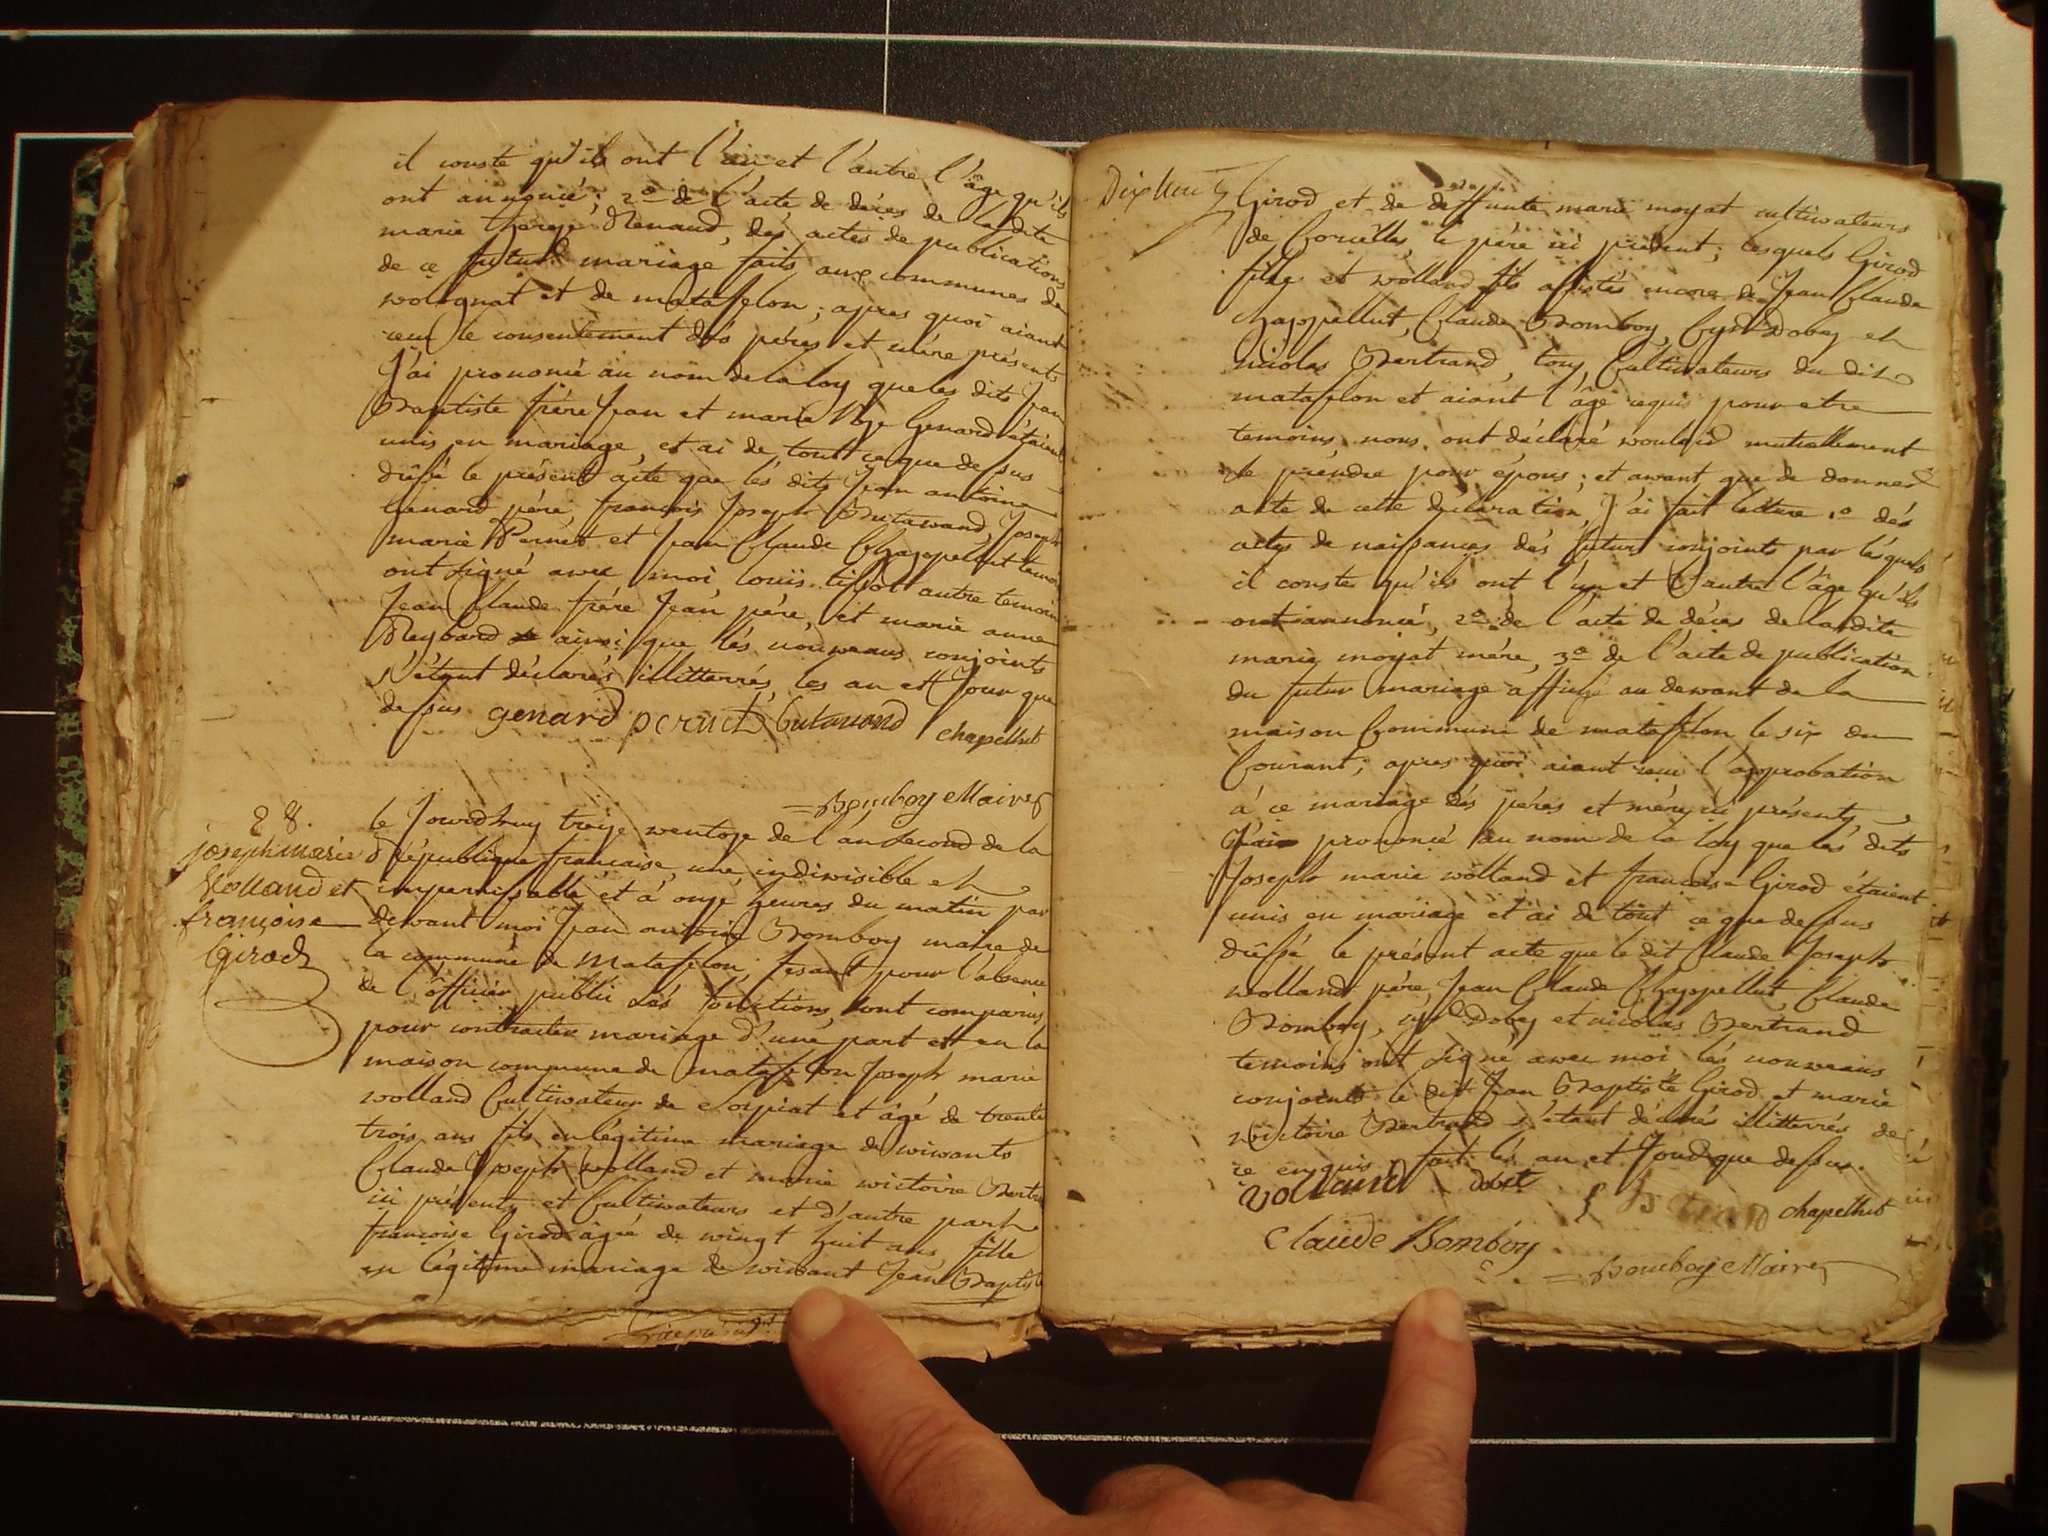 il conste qu'ils ont l'un et l'autre l'âge qu'ils
ont annoncé; 2o de l'acte de déces de ladite
marie thereze Renaud, dés actes de publications
de ce futur mariage faits aux communes de
wolognat et de matafelon; apres quoi aiant
recu le consentement dés péres et mére présents
J'ai prononcé au nom de la loy que les dits Jean
Baptiste frére Jean et marie Genard étaient
unis en mariage, et ai de tout ce que dessus
dréssé le présent acte que lés dits Jean antoine
Genard pére, francois Joseph Butavand, Joseph
marie Pernet et Jean Claude Chappellut temoins
ont signé avec moi, louis tissot autre temoin
Jean Claude frére Jean pére, et marie anne
Reybard ainsi que lés nouveaux conjoints
s'étant déclarés illitterrés, les an et Jour que
dessus genard pernet Butavand
chapellut
=Bomboy Maire
28.
joseph marie
Volland et
françoise
Girod
le Jourdhuy treize wentoze de l'an second de la
République française, une, indiwisible et
imperrissable et à onze heures du matin par
dewant moi Jean antoine Bomboy maire de
la commune de Matafelon, fesant pour l'absence
de l'officier public sés fonctions, sont comparus
pour contracter mariage d'une part et en la
maison commune de matafelon Joseph marie
wolland Cultiwateur de Corpiat et âgé de trente
trois ans fils en légitime mariage de wiwants
Claude Joseph wolland et marie wictoire Bertrand
ici présents et Cultiwateurs et d'autre part
francoise Girod âgée de wingt huit ans, fille
en légitime mariage de wiwant Jean Baptiste
Dix huit
Girod et de deffunte marie moyat cultiwateurs
de Corcelles, le pére ici présent; lesquels Girod
fille et wolland fils assistés encore de Jean Claude
Chappellut, Claude Bomboy, Dobey et
nicolas Bertrand, tous Cultiwateurs du dit
matafelon et aiant l'âge requis pour etre
temoins, nous ont déclaré wouloir mutuellement
se préndre pour épous; et awant que de donner
acte de cette déclaration, J'ai fait lécture 1o dés
actes de naissances dés futurs conjoints par lésquels
il conste qu'ils ont l'un et l'autre l'âge qu'ils
ont annoncé, 2o de l'acte de déces de ladite
marie moyat mére, 3o de l'acte de publication
du futur mariage affiché au dewant de la
maison Commune de matafelon le six du
Courant; apres quoi aiant recu l'approbation
à ce mariage dés péres et mére ici présents,
J'ai prononcé au nom de la loy que lés dits
Joseph marie wolland et francoise Girod étaient
unis en mariage et ai de tout ce que dessus
dréssé le présent acte que le dit Claude Joseph
wolland pére, Jean Claude Chappellut, Claude
Bomboy, Dobey et nicolas Bertrand
temoins ont signé avec moi lés nouweaux
conjoints le dit Jean Baptiste Girod et marie
wictoire Bertrand s'étant déclarés illitterrés de
ce enquis, fait lés an et Jour que dessus.
Volland dobet chapellut
Claude Bomboy
=Bomboy Maire